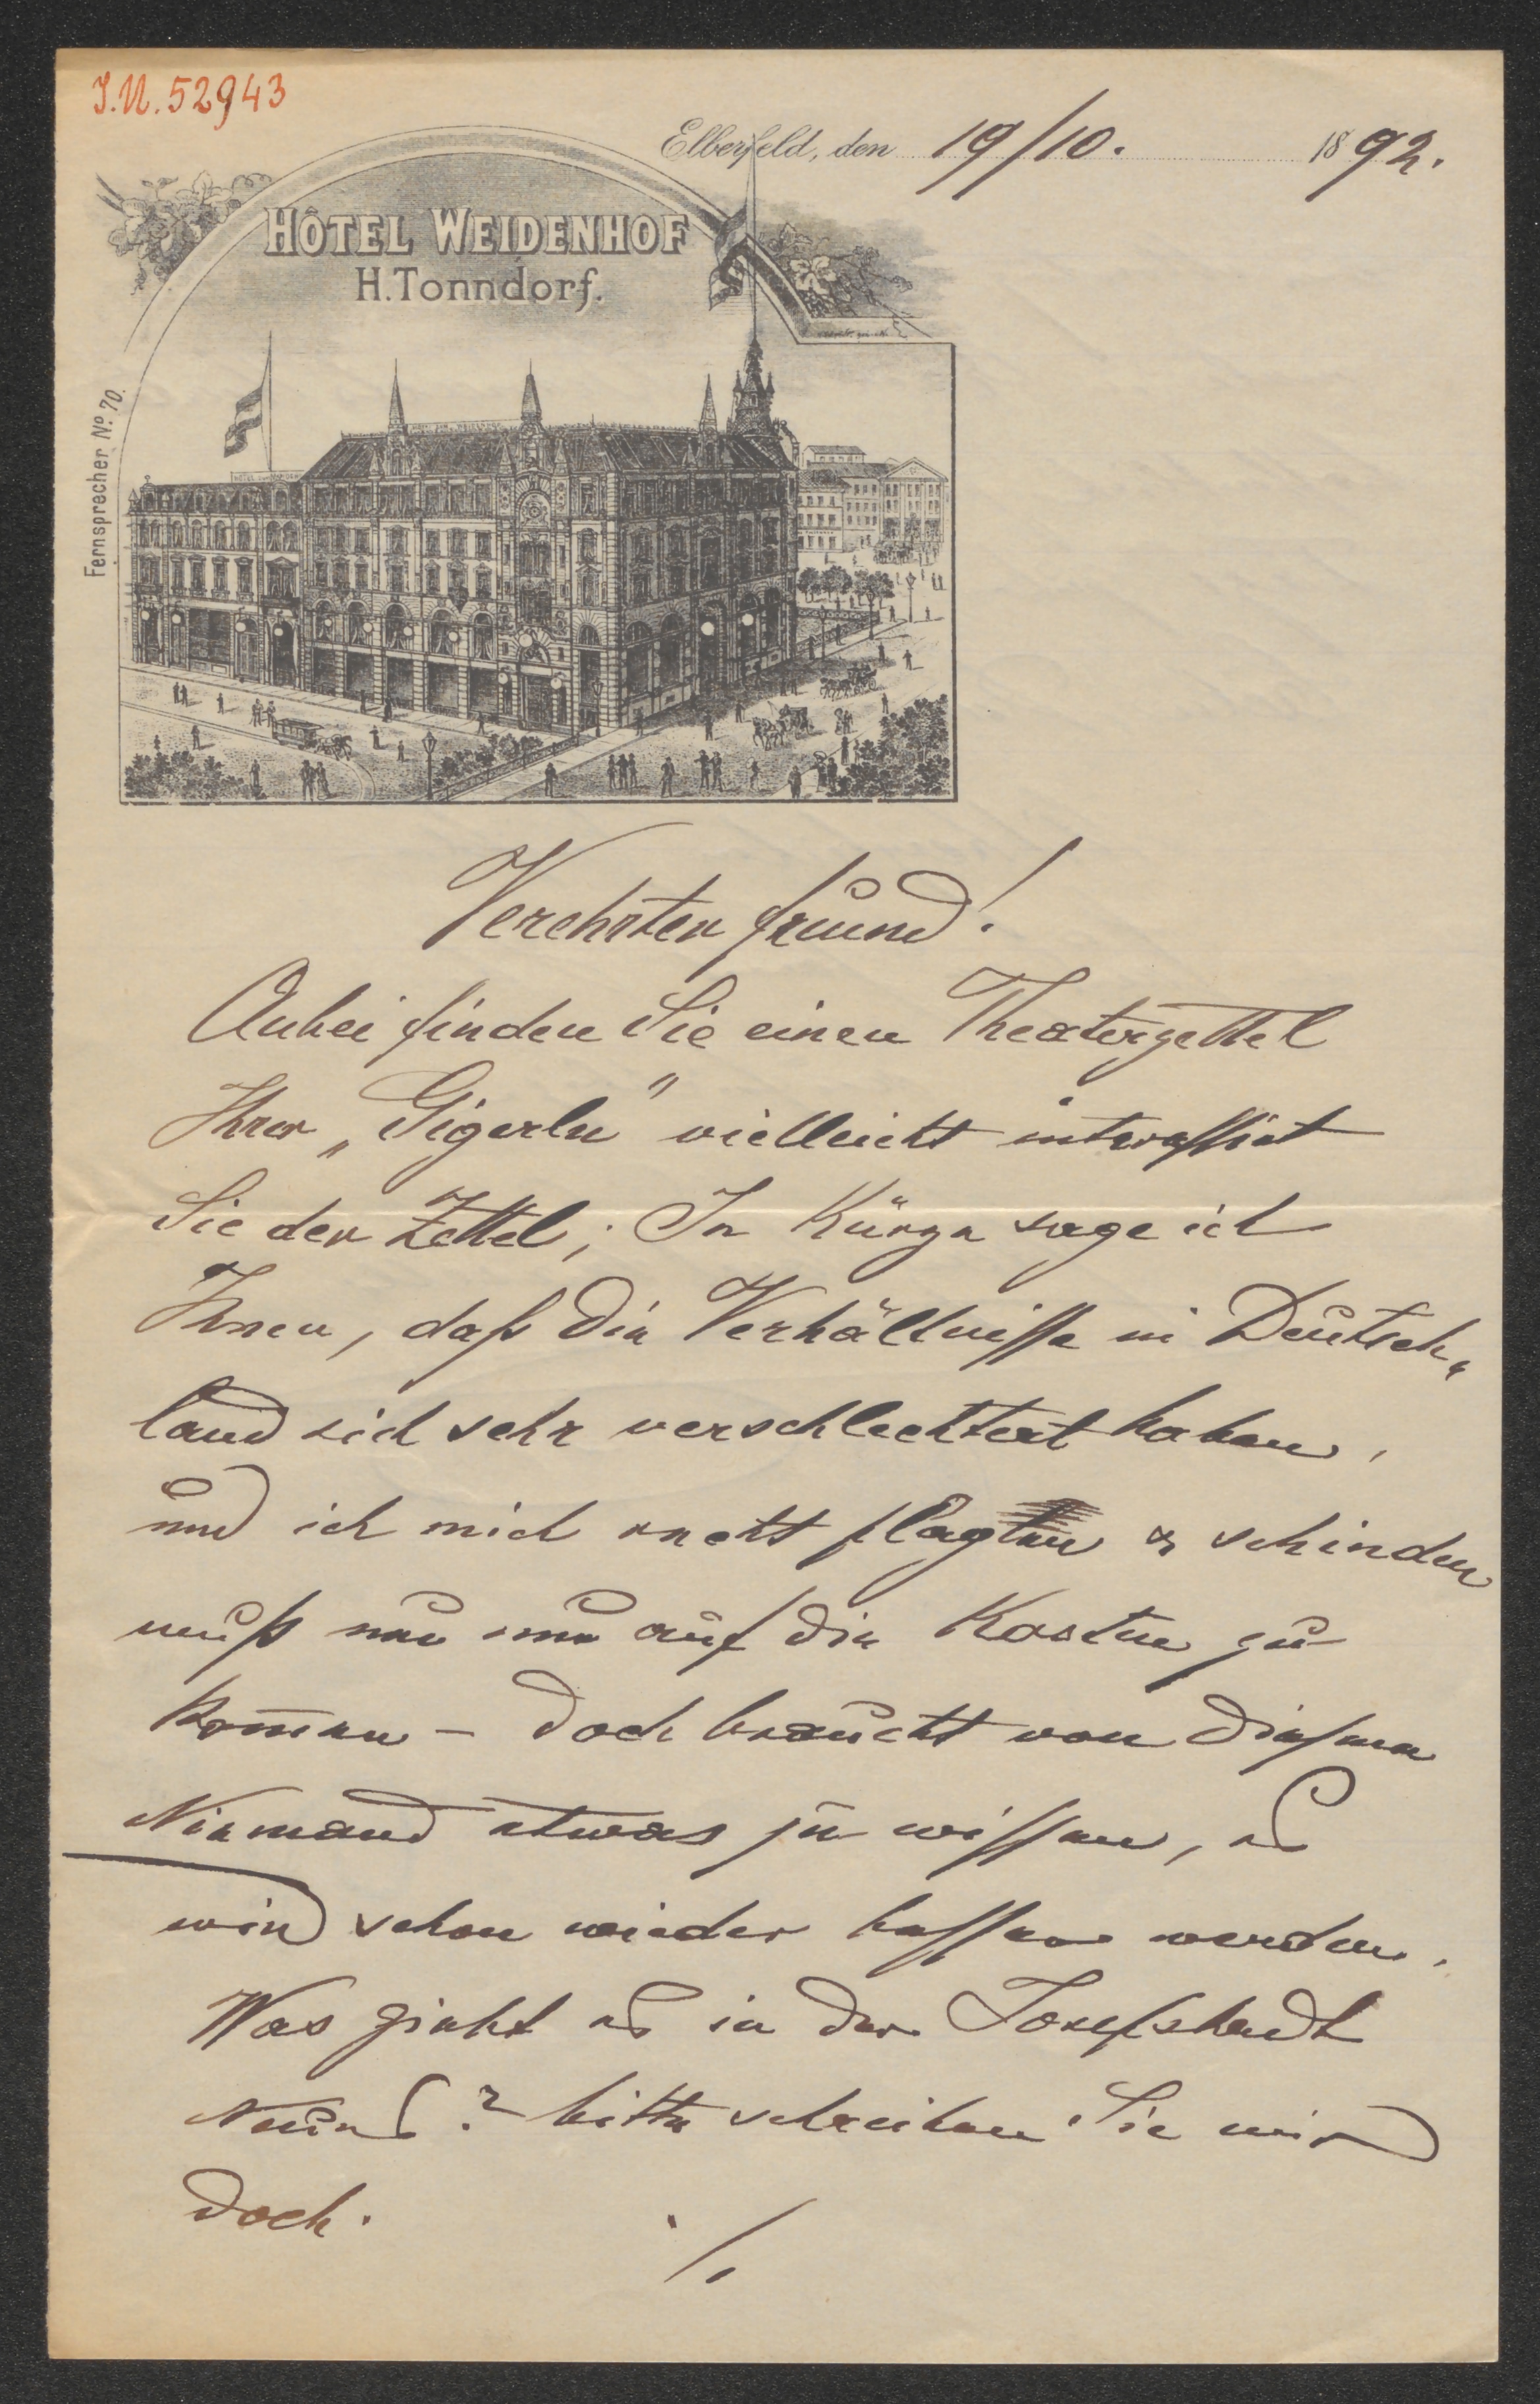 I.N. 52943
Elberfeld, den 19/10. 1892.
HÔTEL WEIDENHOF
H. Tonndorf.
Fernsprecher No. 70.
Verehrter Freund!
Anbei finden Sie einen Theaterzettel
Ihrer „Gigerln" vielleicht interessirt
Sie der Zettel; In Kürze sage ich
Ihnen, daß die Verhältnisse in Deutsch„
land sich sehr verschlechtert haben,
und ich mich recht plagen & schinden
muß um nur auf die Kosten zu
kom̄en – doch braucht von diesem
Niemand etwas zu wissen, es
wird schon wieder besser werden.
Was giebt es in der Josefstadt
Neues? bitte schreiben Sie mir
doch.
./.